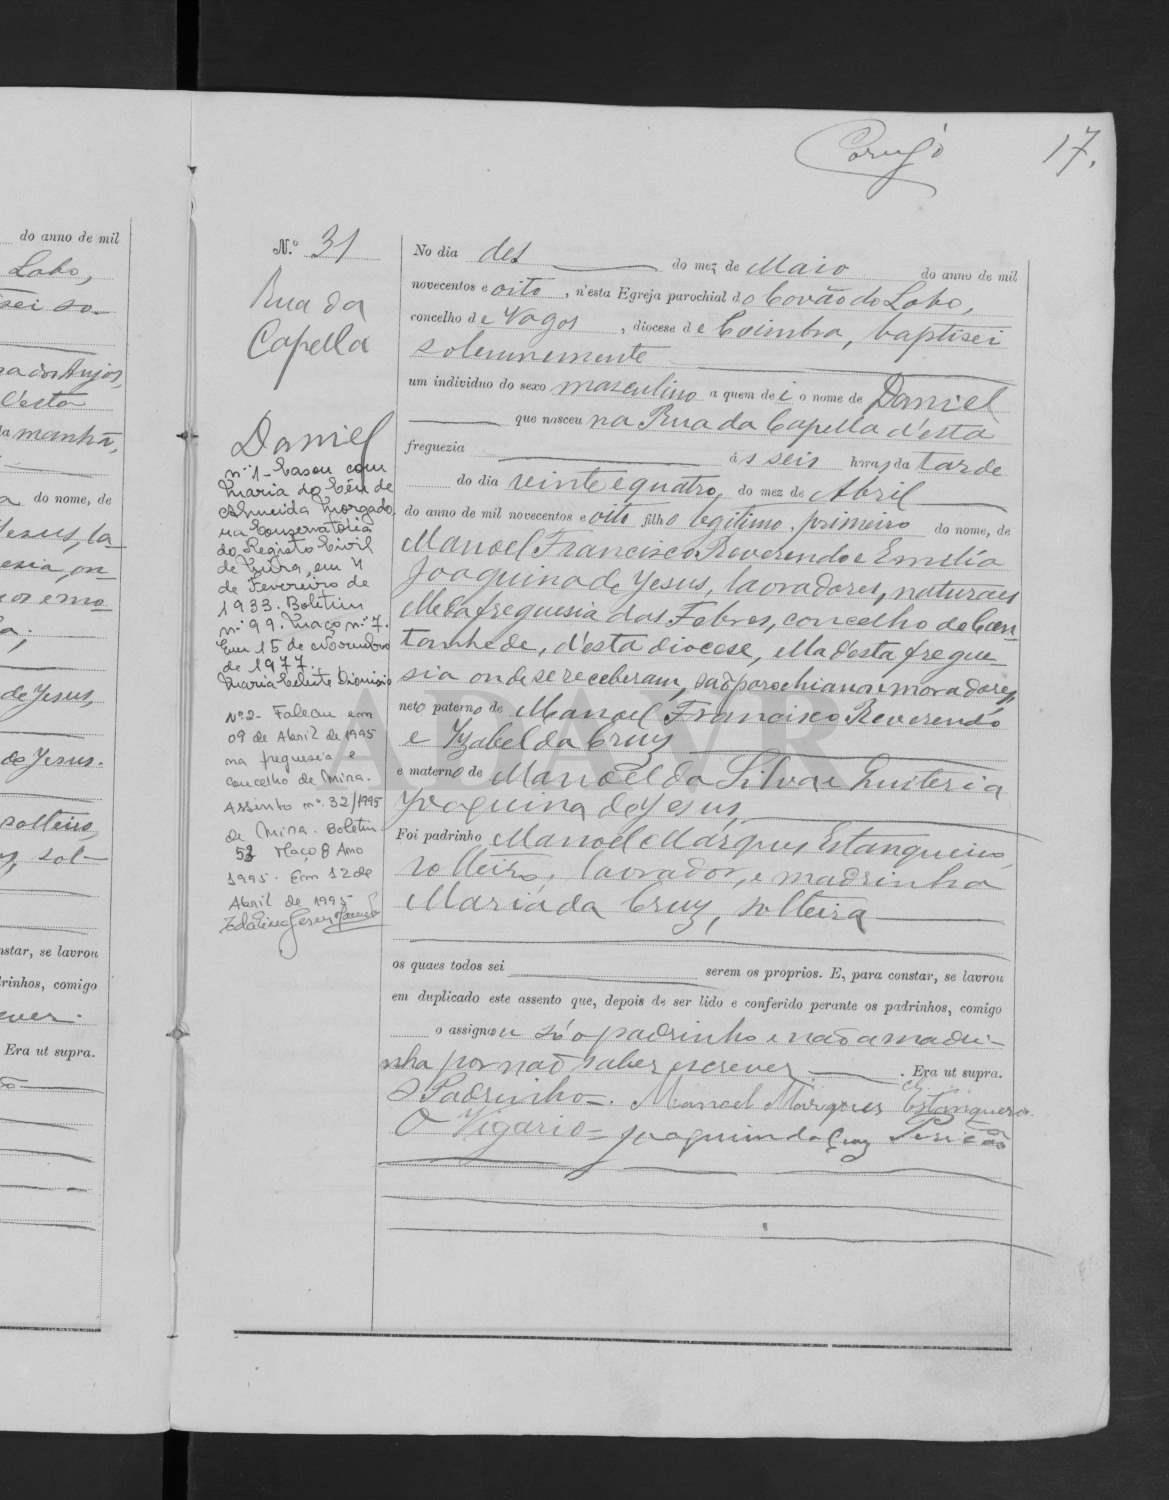 17.
do anno de mil
Lobo,
d'esta
da manhã,
do nome, de
de Jesus,
de Jesus.
solteiro,
constar, se lavrou
padrinhos, comigo
Era ut supra.
N.º 31
Rua da
Capella
Daniel
nº 1 - Casou com
Maria do Céu de
Almeida Morgado
na Conservatória
do Registo Civil
de Mira, em 4
de Fevereiro de
1933. Boletim
nº 99. Maço nº 7.
Em 15 de Novembro
de 1977.
Maria Celeste Dionisio
Nº 2 - Faleceu em
09 de Abril de 1995
na freguesia e
concelho de Mira.
Assento nº 32/1995
de Mira. Boletim
52 Maço 8 Ano
1995. Em 12 de
Abril de 1995
No dia dez do mez de Maio do anno de mil
novecentos e oito, n'esta Egreja parochial do Covão do Lobo,
concelho de Vagos, diocese de Coimbra, baptisei
solemnemente
um individuo do sexo masculino a quem dei o nome de Daniel
que nasceu na Rua da Capella d'esta
freguezia ás seis horas da tarde
do dia vinte e quatro, do mez de Abril
do anno de mil novecentos e oito filho legitimo, primeiro do nome, de
Manoel Francisco Reverendo e Emelia
Joaquina de Jesus, lavradores, naturaes
elle da freguesia das Febres, concelho de Can-
tanhede, d'esta diocese, ella d'esta fregue-
sia onde se receberam, são parochianos e moradores,
neto paterno de Manoel Francisco Reverendo
e Yzabel da Cruz
e materno de Manoel da Silva e Quiteria
Joaquina de Jesus,
Foi padrinho Manoel Marques Estanqueiro,
solteiro, lavrador, e madrinha
Maria da Cruz, solteira
os quaes todos sei serem os proprios. E, para constar, se lavrou
em duplicado este assento que, depois de ser lido e conferido perante os padrinhos, comigo
o assignou só o padrinho e não a madri-
nha por não saber escrever. Era ut supra.
O Padrinho=. Manoel Marques Estanqueiro
O Vigario= Joaquim da Cruz
ADAVR